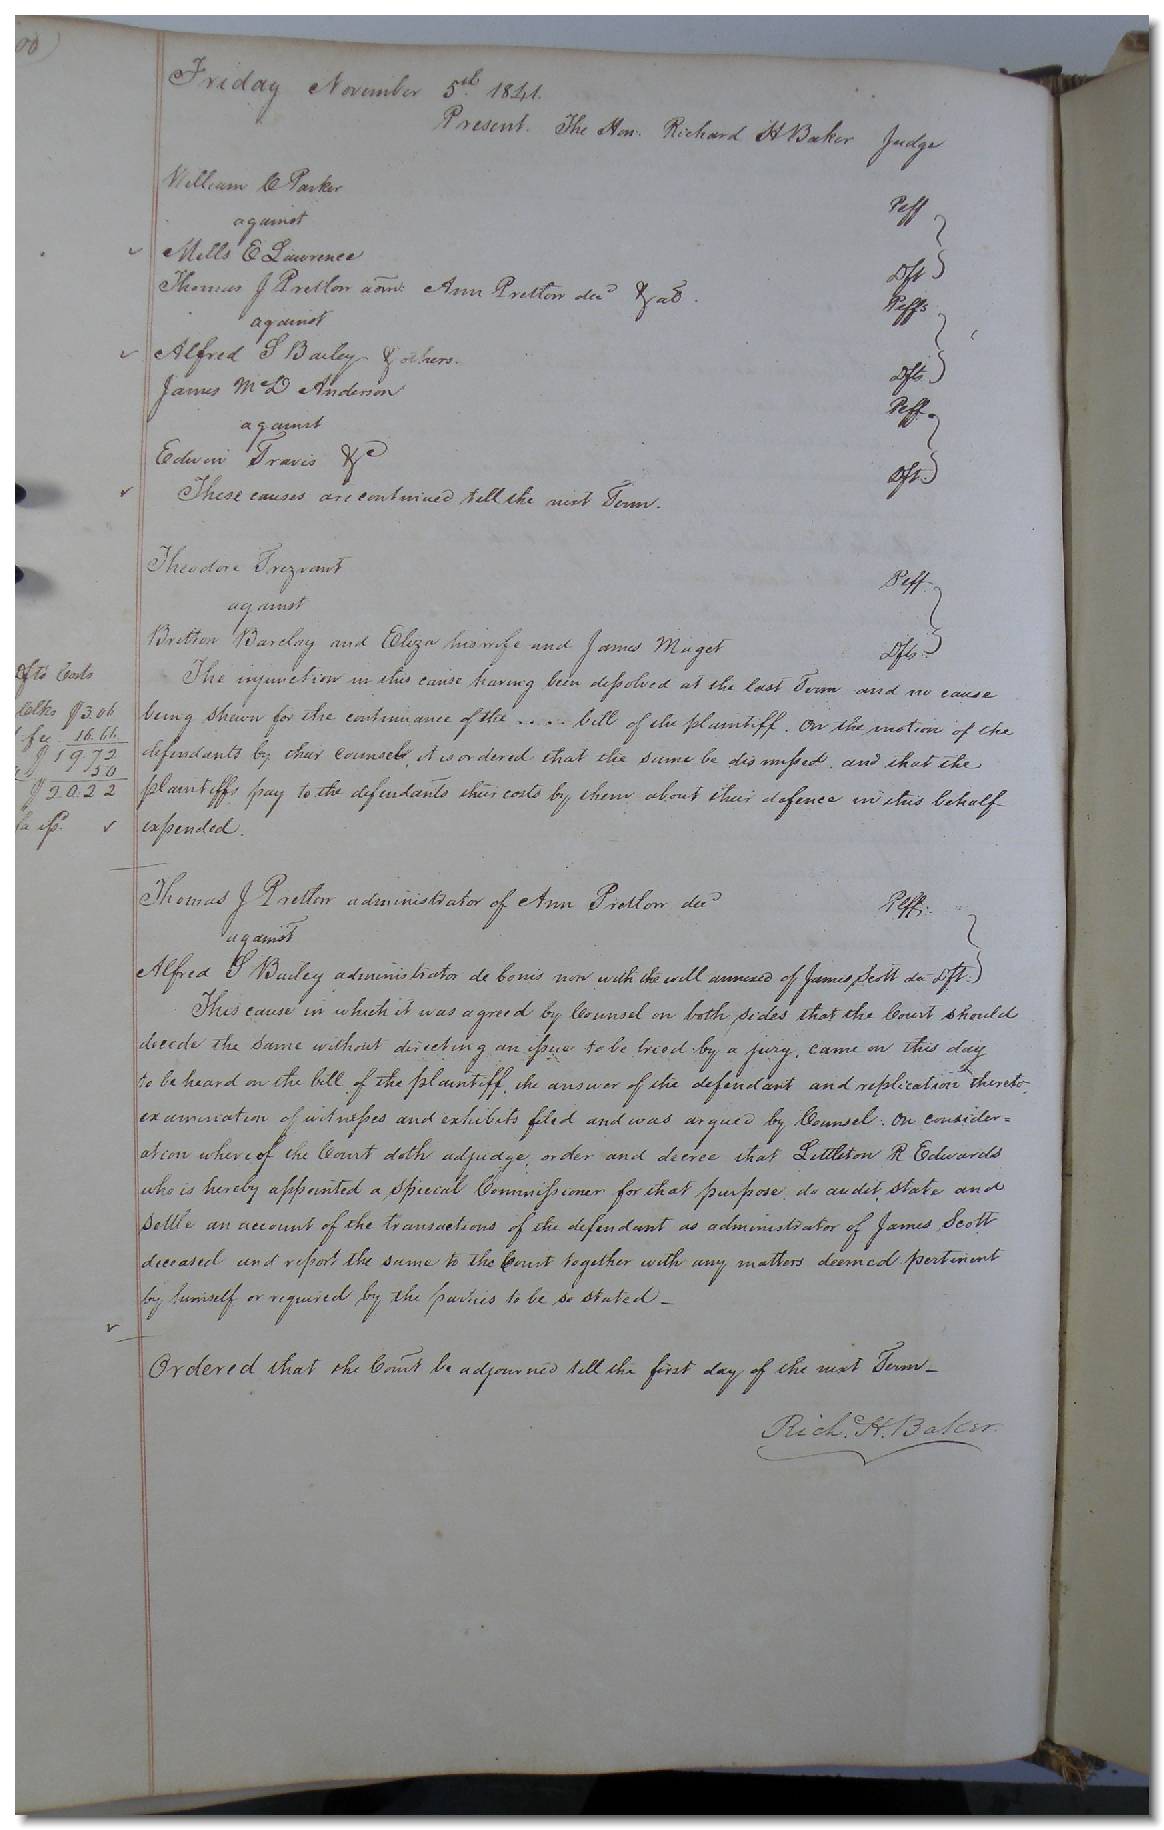 Friday November 5th 1841.
Present. The Hon. Richard H Baker Judge
William C Parker Plff
against
Mills E Lawrence Dft
Thomas J Pretlow admr Ann Pretlow decd & al. Plffs
against
Alfred S Bailey & others. Dfts
James McD Anderson Plff
against
Edwin Travis &c Dft
These causes are continued till the next Term.
Theodore Trezvant Plff
against
Britton Barclay and Eliza his wife and James Maget Dfts
The injunction in this cause having been dissolved at the last Term and no cause
being shewn for the continuance of the .... bill of the plaintiff. On the motion of the
defendants by their counsel, it is ordered that the same be dismissed, and that the
plaintiffs pay to the defendants their costs by them about their defence in this behalf
expended.
Dfts Costs
$3.06
fee 16.66
$19.72
50
$20.22
Thomas J Pretlow administrator of Ann Pretlow decd Plff.
against
Alfred S Bailey administrator de bonis non with the will annexed of James Scott de Dft.
This cause in which it was agreed by Counsel on both sides that the Court should
decide the same without directing an issue to be tried by a jury, came on this day
to be heard on the bill of the plaintiff, the answer of the defendant and replication thereto,
examination of witnesses and exhibits filed and was argued by Counsel. On consider=
ation whereof the Court doth adjudge, order and decree that Littleton R Edwards
who is hereby appointed a special Commissioner for that purpose, do audit, state and
settle an account of the transactions of the defendant as administrator of James Scott
deceased and report the same to the Court together with any matters deemed pertinent
by himself or required by the parties to be so stated_
Ordered that the Court be adjourned till the first day of the next Term_
Richd. H. Baker.